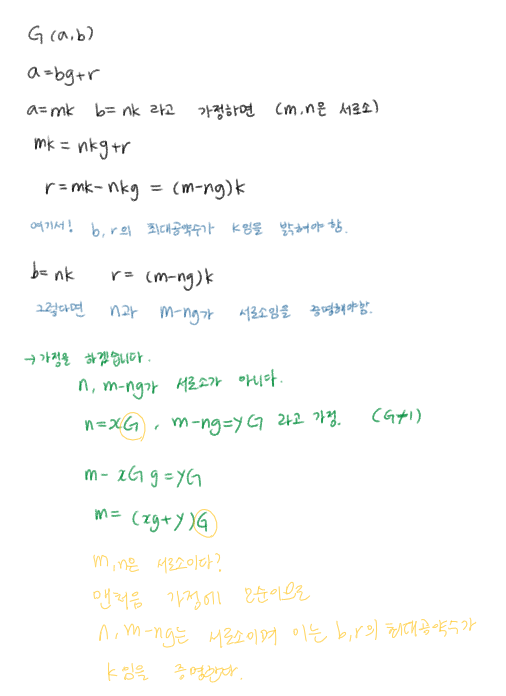 G(a,b)
a=bg+r
a=mk b=nk 라고 가정하면 (m,n은 서로소)
mk = nkg+r
r=mk-nkg = (m-ng)k
여기서! b,r의 최대공약수가 k임을 밝혀야 함.
b=nk r= (m-ng)k
그렇다면 n과 m-ng가 서로소임을 증명해야함.
→ 가정을 하겠습니다.
n, m-ng가 서로소가 아니다.
n=xG, m-ng=yG 라고 가정. (G≠1)
m-xGg=yG
m= (xg+y)G
m,n은 서로소이다?
맨처음 가정에 모순이므로
n, m-ng는 서로소이며 이는 b,r의 최대공약수가
k임을 증명한다.